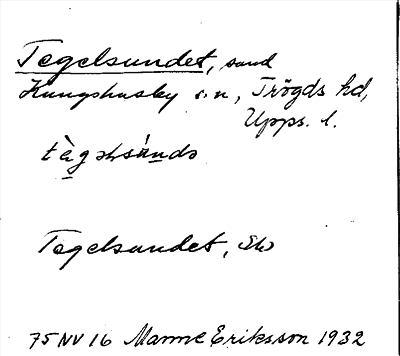 Tegelsundet, sund
Kungshusby s:n, Trögds hd,
Upps. l.
Tegelsundet, Ek
75 NV 16 Manne Eriksson 1932